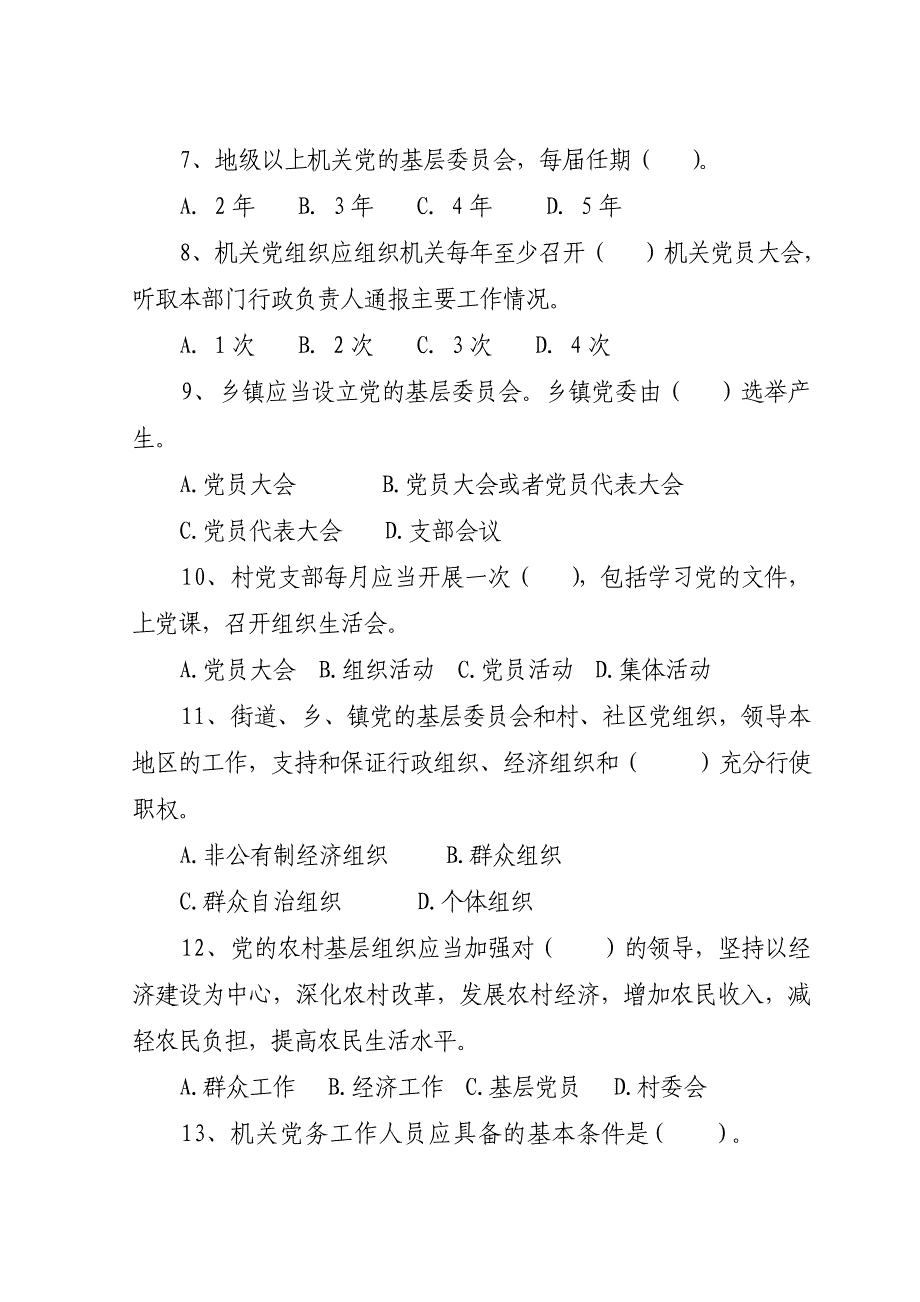 7、地级以上机关党的基层委员会，每届任期（　　）。
A. 2年　B. 3年　C. 4年　D. 5年
8、机关党组织应组织机关每年至少召开（　　）机关党员大会，
听取本部门行政负责人通报主要工作情况。
A. 1次　B. 2次　C. 3次　D. 4次
9、乡镇应当设立党的基层委员会。乡镇党委由（　　）选举产
生。
A.党员大会　　B.党员大会或者党员代表大会
C.党员代表大会　D.支部会议
10、村党支部每月应当开展一次（　　），包括学习党的文件，
上党课，召开组织生活会。
A.党员大会　B.组织活动　C.党员活动　D.集体活动
11、街道、乡、镇党的基层委员会和村、社区党组织，领导本
地区的工作，支持和保证行政组织、经济组织和（　　）充分行使
职权。
A.非公有制经济组织　　B.群众组织
C.群众自治组织　　D.个体组织
12、党的农村基层组织应当加强对（　　）的领导，坚持以经
济建设为中心，深化农村改革，发展农村经济，增加农民收入，减
轻农民负担，提高农民生活水平。
A.群众工作　B.经济工作　C.基层党员　D.村委会
13、机关党务工作人员应具备的基本条件是（　　）。